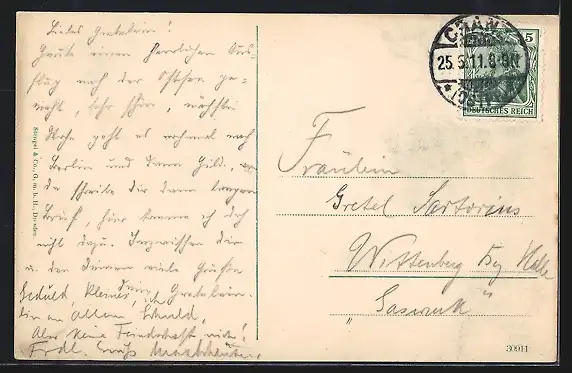 Liebes Gretelein!
Heute einen herrlichen Aus-
flug nach der Ostsee ge-
macht, sehr schön, nächste
Woche geht es nochmal nach
Berlin und dann
da schreibe dir dann langen
Brief, hier komme ich doch
nicht dazu. Inzwischen dir
u. den Deinen viele Grüße
Geduld, kleines Gretelein.
bin an Allem Schuld,
Aber keine Feindschaft nicht!
Frdl. Gruß
Stengel & Co., G. m. b. H., Dresden
CRANZ
25.5.11.8-9N
(OSTPR.)
5
DEUTSCHES REICH
Fräulein
Gretel Sartorius
Wittenberg Bez Halle
"
30911